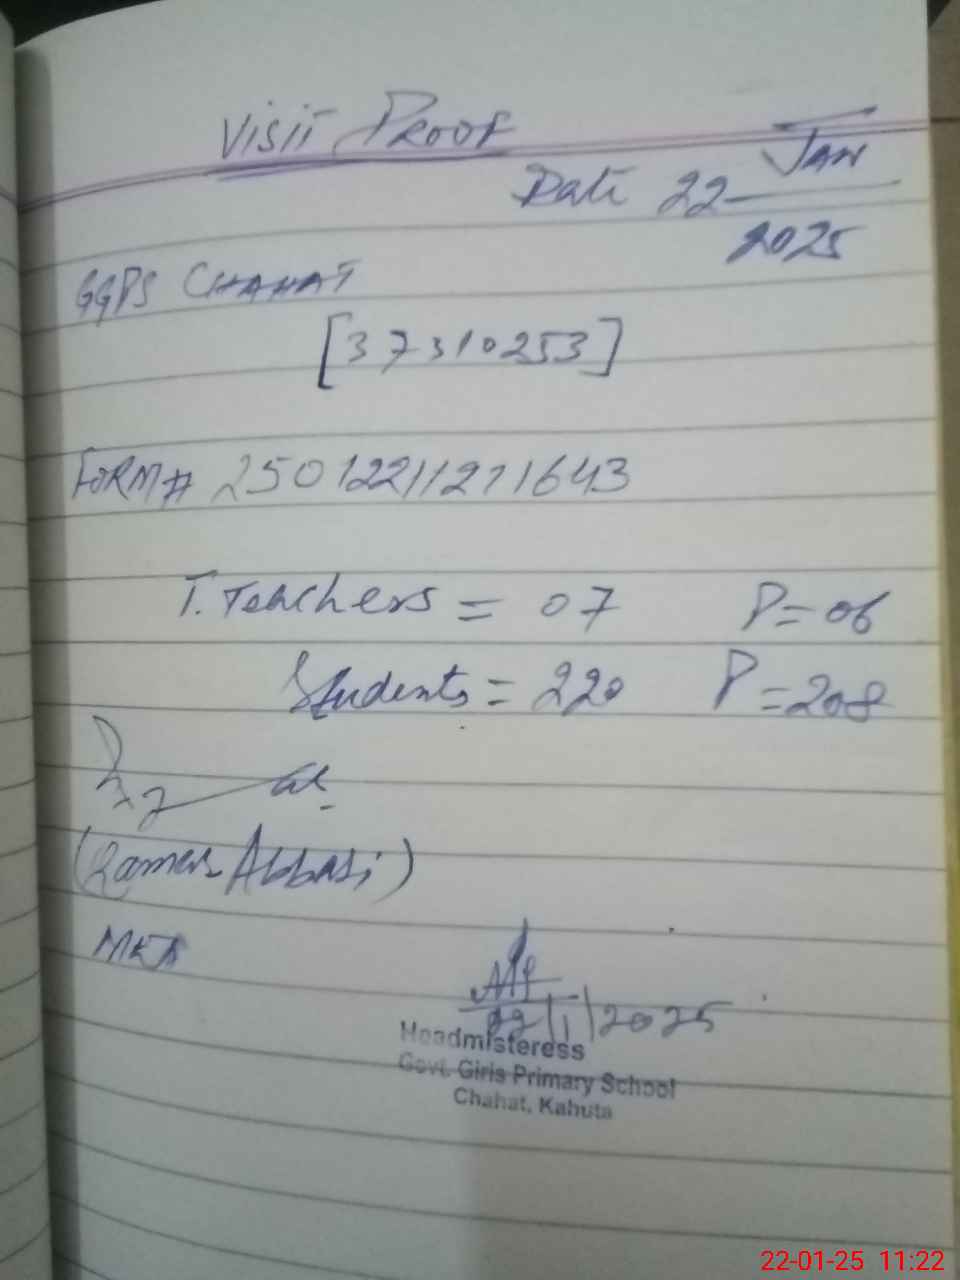 VISIT PROOF
Date 22 JAN
2025
GGPS CHAHAT
[37310253]
FORM# 250122112711643
T. Teachers = 07 P=06
Students = 220 P=208
(Qamer Abbasi)
MEA
22/1/2025
Headmisteress
Govt. Girls Primary School
Chahat, Kahuta
22-01-25 11:22